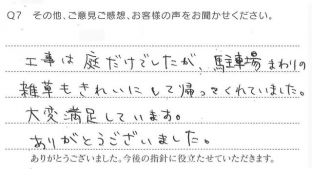 Q7 その他、ご意見ご感想、お客様の声をお聞かせください。
工事は庭だけでしたが、駐車場まわりの
雑草もきれいにして帰ってくれていました。
大変満足しています。
ありがとうございました。
ありがとうございました。今後の指針に役立たせていただきます。